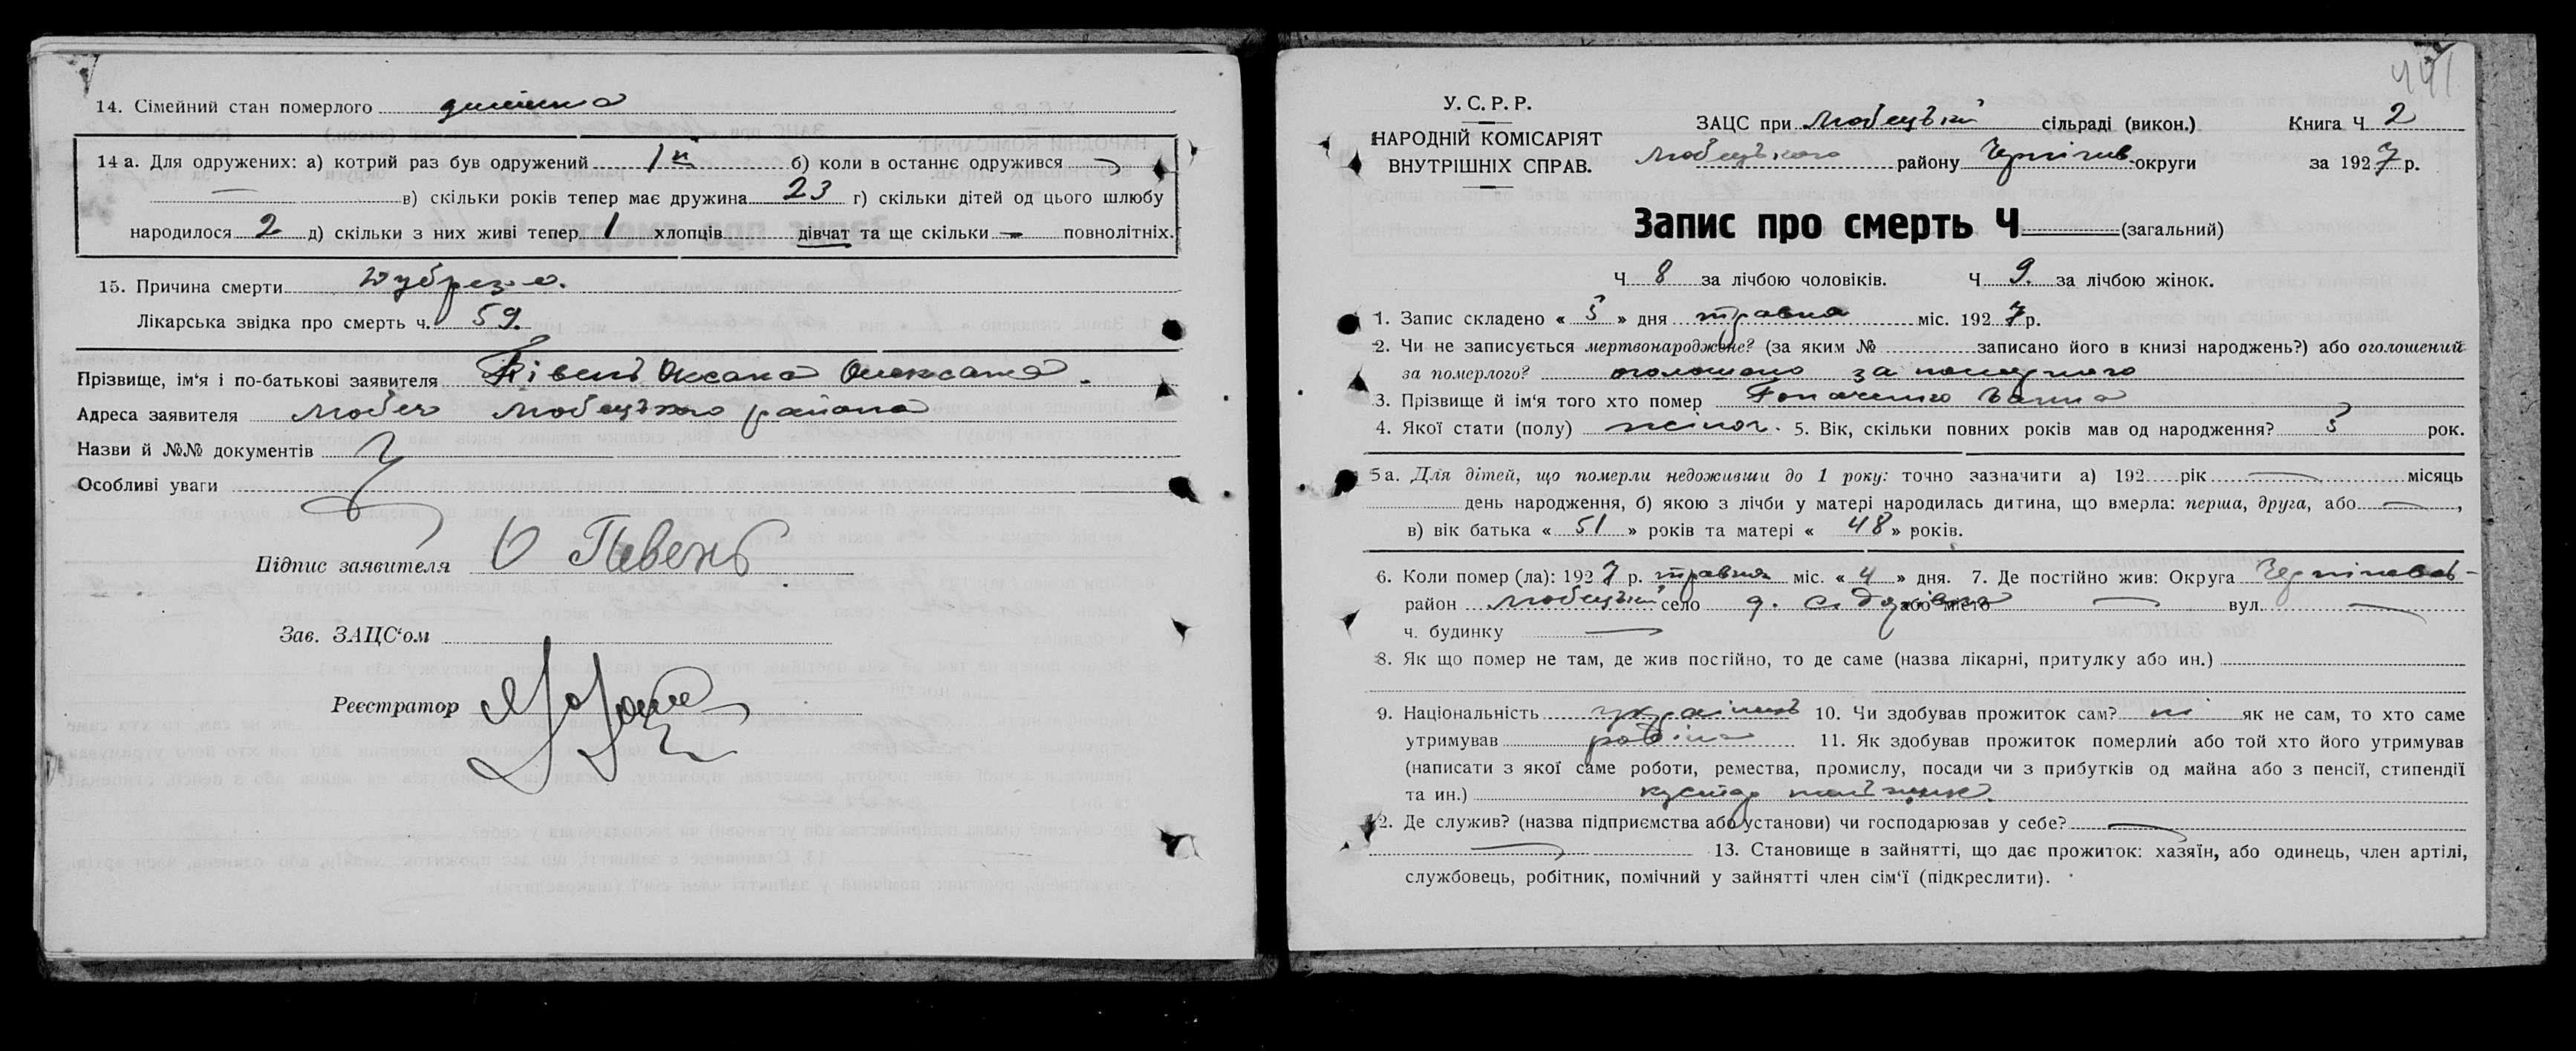 14. Сімейний стан померлого
14 а. Для одружених: а) котрий раз був одружений 1й б) коли в останнє одружився
— в) скільки років тепер має дружина 23 г) скільки дітей од цього шлюбу
народилося 2 д) скільки з них живі тепер 1 хлопців дівчат та ще скільки — повнолітніх.
15. Причина смерти
Лікарська звідка про смерть ч. 59.
Прізвище, ім'я і по-батькові заявителя Півень Оксана
Адреса заявителя Любеч Любецького района
Назви й №№ документів
Особливі уваги
Підпис заявителя О Певень
Зав. ЗАЦС'ом
Реєстратор
441
У. С. Р. Р.
НАРОДНІЙ КОМІСАРІЯТ
ВНУТРІШНІХ СПРАВ.
ЗАЦС при Любецькій сільраді (викон.) Книга Ч 2
Любецького району Чернігив. округи за 1927 р.
Запис про смерть Ч (загальний)
Ч 8 за лічбою чоловіків. Ч 9. за лічбою жінок.
1. Запис складено « 5 » дня травня міс. 1927 р.
2. Чи не записується мертвонароджене? (за яким № записано його в книзі народжень?) або оголошений
за померлого? оголошено за померлого
3. Прізвище й ім'я того хто помер Ганна
4. Якої стати (полу) жіноч. 5. Вік, скільки повних років мав од народження? рок.
5 а. Для дітей, що померли недоживши до 1 року: точно зазначити а) 192 рік — місяць
день народження, б) якою з лічби у матері народилась дитина, що вмерла: перша, друга, або — ,
в) вік батька « 51 » років та матері « 48 » років.
6. Коли помер (ла): 1927 р. травня міс. « 4 » дня. 7. Де постійно жив: Округа
район Любецькій село або місто — вул. —
ч. будинку —
8. Як що помер не там, де жив постійно, то де саме (назва лікарні, притулку або ин.)
9. Національність українець 10. Чи здобував прожиток сам? ні як не сам, то хто саме
утримував родіна 11. Як здобував прожиток померлий або той хто його утримував
(написати з якої саме роботи, ремества, промислу, посади чи з прибутків од майна або з пенсії, стипендії
та ин.) кустар
12. Де служив? (назва підприємства або установи) чи господарював у себе? —
— 13. Становище в зайнятті, що дає прожиток: хазяїн, або одинець, член артілі,
службовець, робітник, помічний у зайнятті член сім'ї (підкреслити).